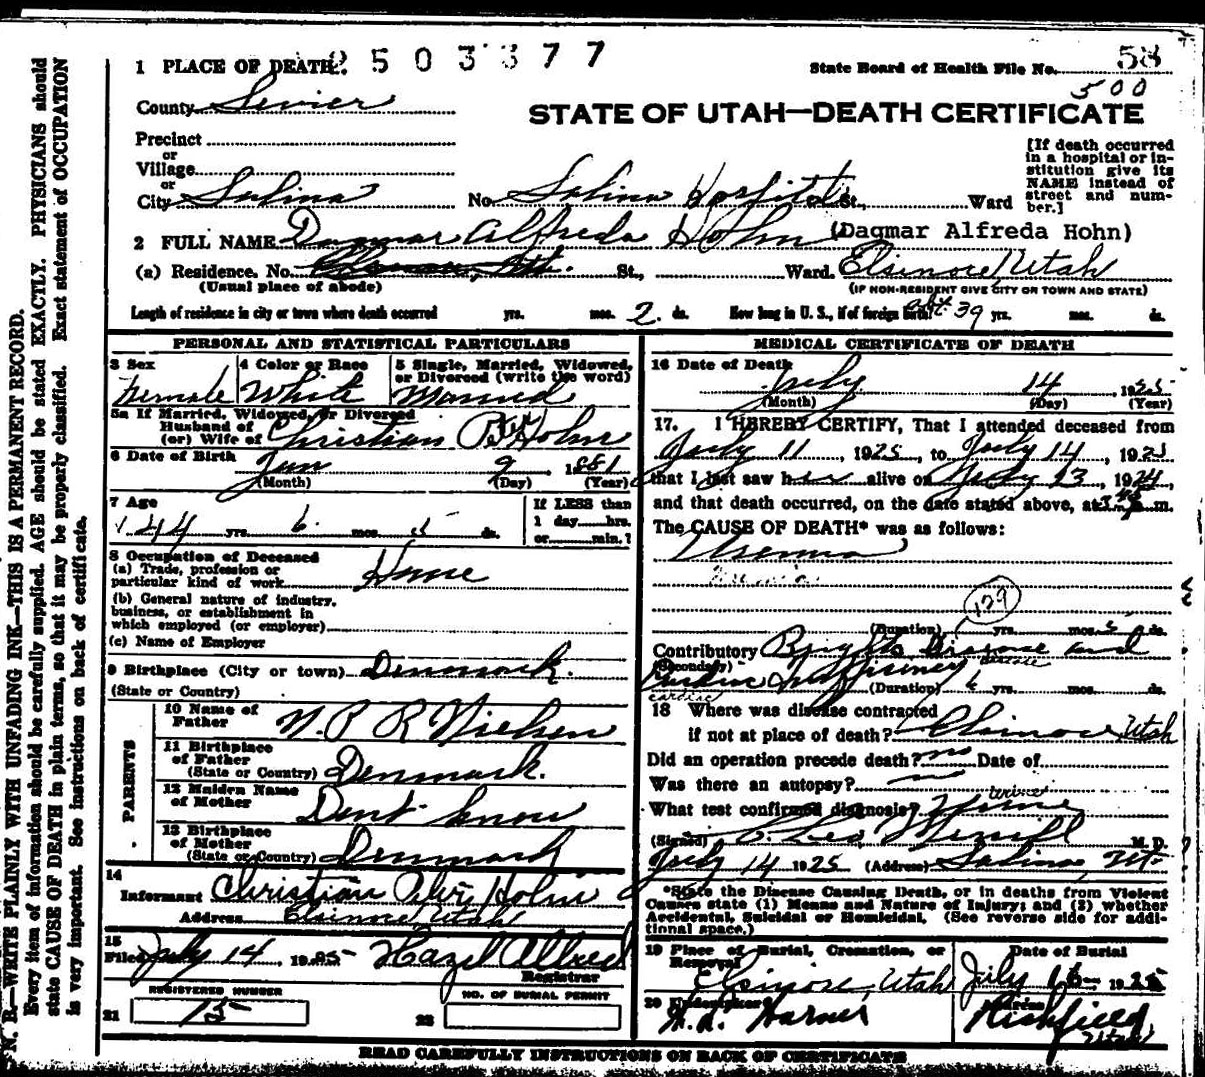 N. B.—WRITE PLAINLY WITH UNFADING INK—THIS IS A PERMANENT RECORD.
Every item of information should be carefully supplied. AGE should be stated EXACTLY. PHYSICIANS should
state CAUSE OF DEATH in plain terms, so that it may be properly classified. Exact statement of OCCUPATION
is very important. See instructions on back of certificate.
1 PLACE OF DEATH. 2503377
State Board of Health File No. 58
500
County Sevier
STATE OF UTAH—DEATH CERTIFICATE
Precinct
or
Village
or
City Salina No. Salina Hospital St., Ward
[If death occurred
in a hospital or in-
stitution give its
NAME instead of
street and num-
ber.]
2 FULL NAME Dagmar Alfreda Hohn (Dagmar Alfreda Hohn)
(a) Residence. No. St., Ward. Elsinore, Utah
(Usual place of abode) (IF NON-RESIDENT GIVE CITY OR TOWN AND STATE)
Length of residence in city or town where death occurred yrs. mos. 2 ds. How long in U. S., if of foreign birth? abt. 39 yrs. mos. ds.
PERSONAL AND STATISTICAL PARTICULARS
3 Sex 4 Color or Race 5 Single, Married, Widowed,
or Divorced (write the word)
Female White Married
5a If Married, Widowed, or Divorced
Husband of
(or) Wife of Christian Peter Holm
6 Date of Birth Jan 9, 1881
(Month) (Day) (Year)
7 Age If LESS than
1 day hrs.
44 yrs. 6 mos. 5 ds. or min.?
8 Occupation of Deceased
(a) Trade, profession or
particular kind of work Home
(b) General nature of industry,
business, or establishment in
which employed (or employer)
(c) Name of Employer
9 Birthplace (City or town) Denmark.
(State or Country)
PARENTS
10 Name of
Father N. P. R Nielsen
11 Birthplace
of Father
(State or Country) Denmark.
12 Maiden Name
of Mother Dont know
13 Birthplace
of Mother
(State or Country) Denmark
14
Informant Christian Peter Holm
Address Elsinore, Utah
15
Filed July 14, 1925 Hazel Allred
Registrar
REGISTERED NUMBER
21 15
NO. OF BURIAL PERMIT
22
MEDICAL CERTIFICATE OF DEATH
16 Date of Death
July 14 1925
(Month) (Day) (Year)
17. I HEREBY CERTIFY, That I attended deceased from
July 11, 1925, to July 14, 1925
that I last saw her alive on July 13, 1924,
and that death occurred, on the date stated above, at m.
The CAUSE OF DEATH* was as follows:
Uremia
129
(Duration) yrs. mos. 5 ds.
Contributory Brights Disease and
(Secondary) Cardiac Insufficiency disease
cardiac (Duration) yrs. mos. ds.
18 Where was disease contracted
if not at place of death? Elsinore, Utah
Did an operation precede death? no Date of
Was there an autopsy? no
What test confirmed diagnosis? Urine urine
(Signed) Leo Merrill M. D.
July 14 1925 (Address) Salina, Ut.
*State the Disease Causing Death, or in deaths from Violent
Causes state (1) Means and Nature of Injury; and (2) whether
Accidental, Suicidal or Homicidal. (See reverse side for addi-
tional space.)
19 Place of Burial, Cremation, or
Removal
Elsinore, Utah
Date of Burial
July 16 1925
20 Undertaker
Warner
Address
Richfield
Utah
READ CAREFULLY INSTRUCTIONS ON BACK OF CERTIFICATE